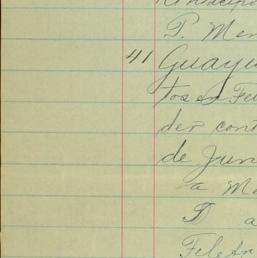 P. Mer
41 Guayu
tos en Fe
der cont
de Jun
a Ma
D a